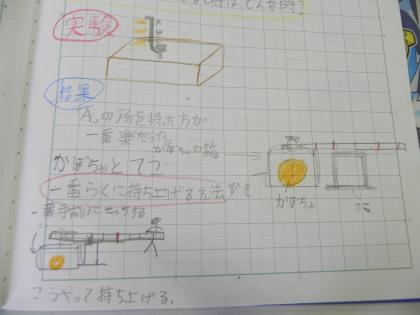 時はどんな時？
実験
結果
Aの所を持った方が
一番楽だった
かぼちゃの箱
かぼちゃと てつ
一番らくに持ち上げる方法
かぼちゃ
一番手前に
こうやって持ち上げる。